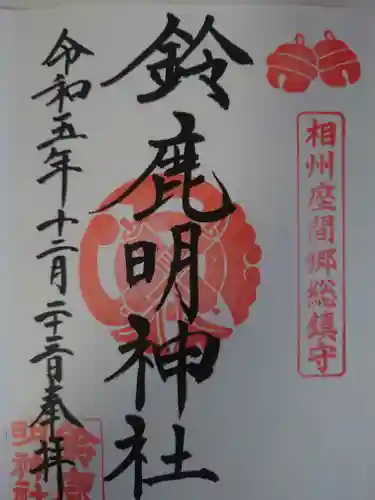 相州座間郷総鎮守
鈴鹿明神社
令和五年十二月二十三日奉拝
鈴鹿
明神社